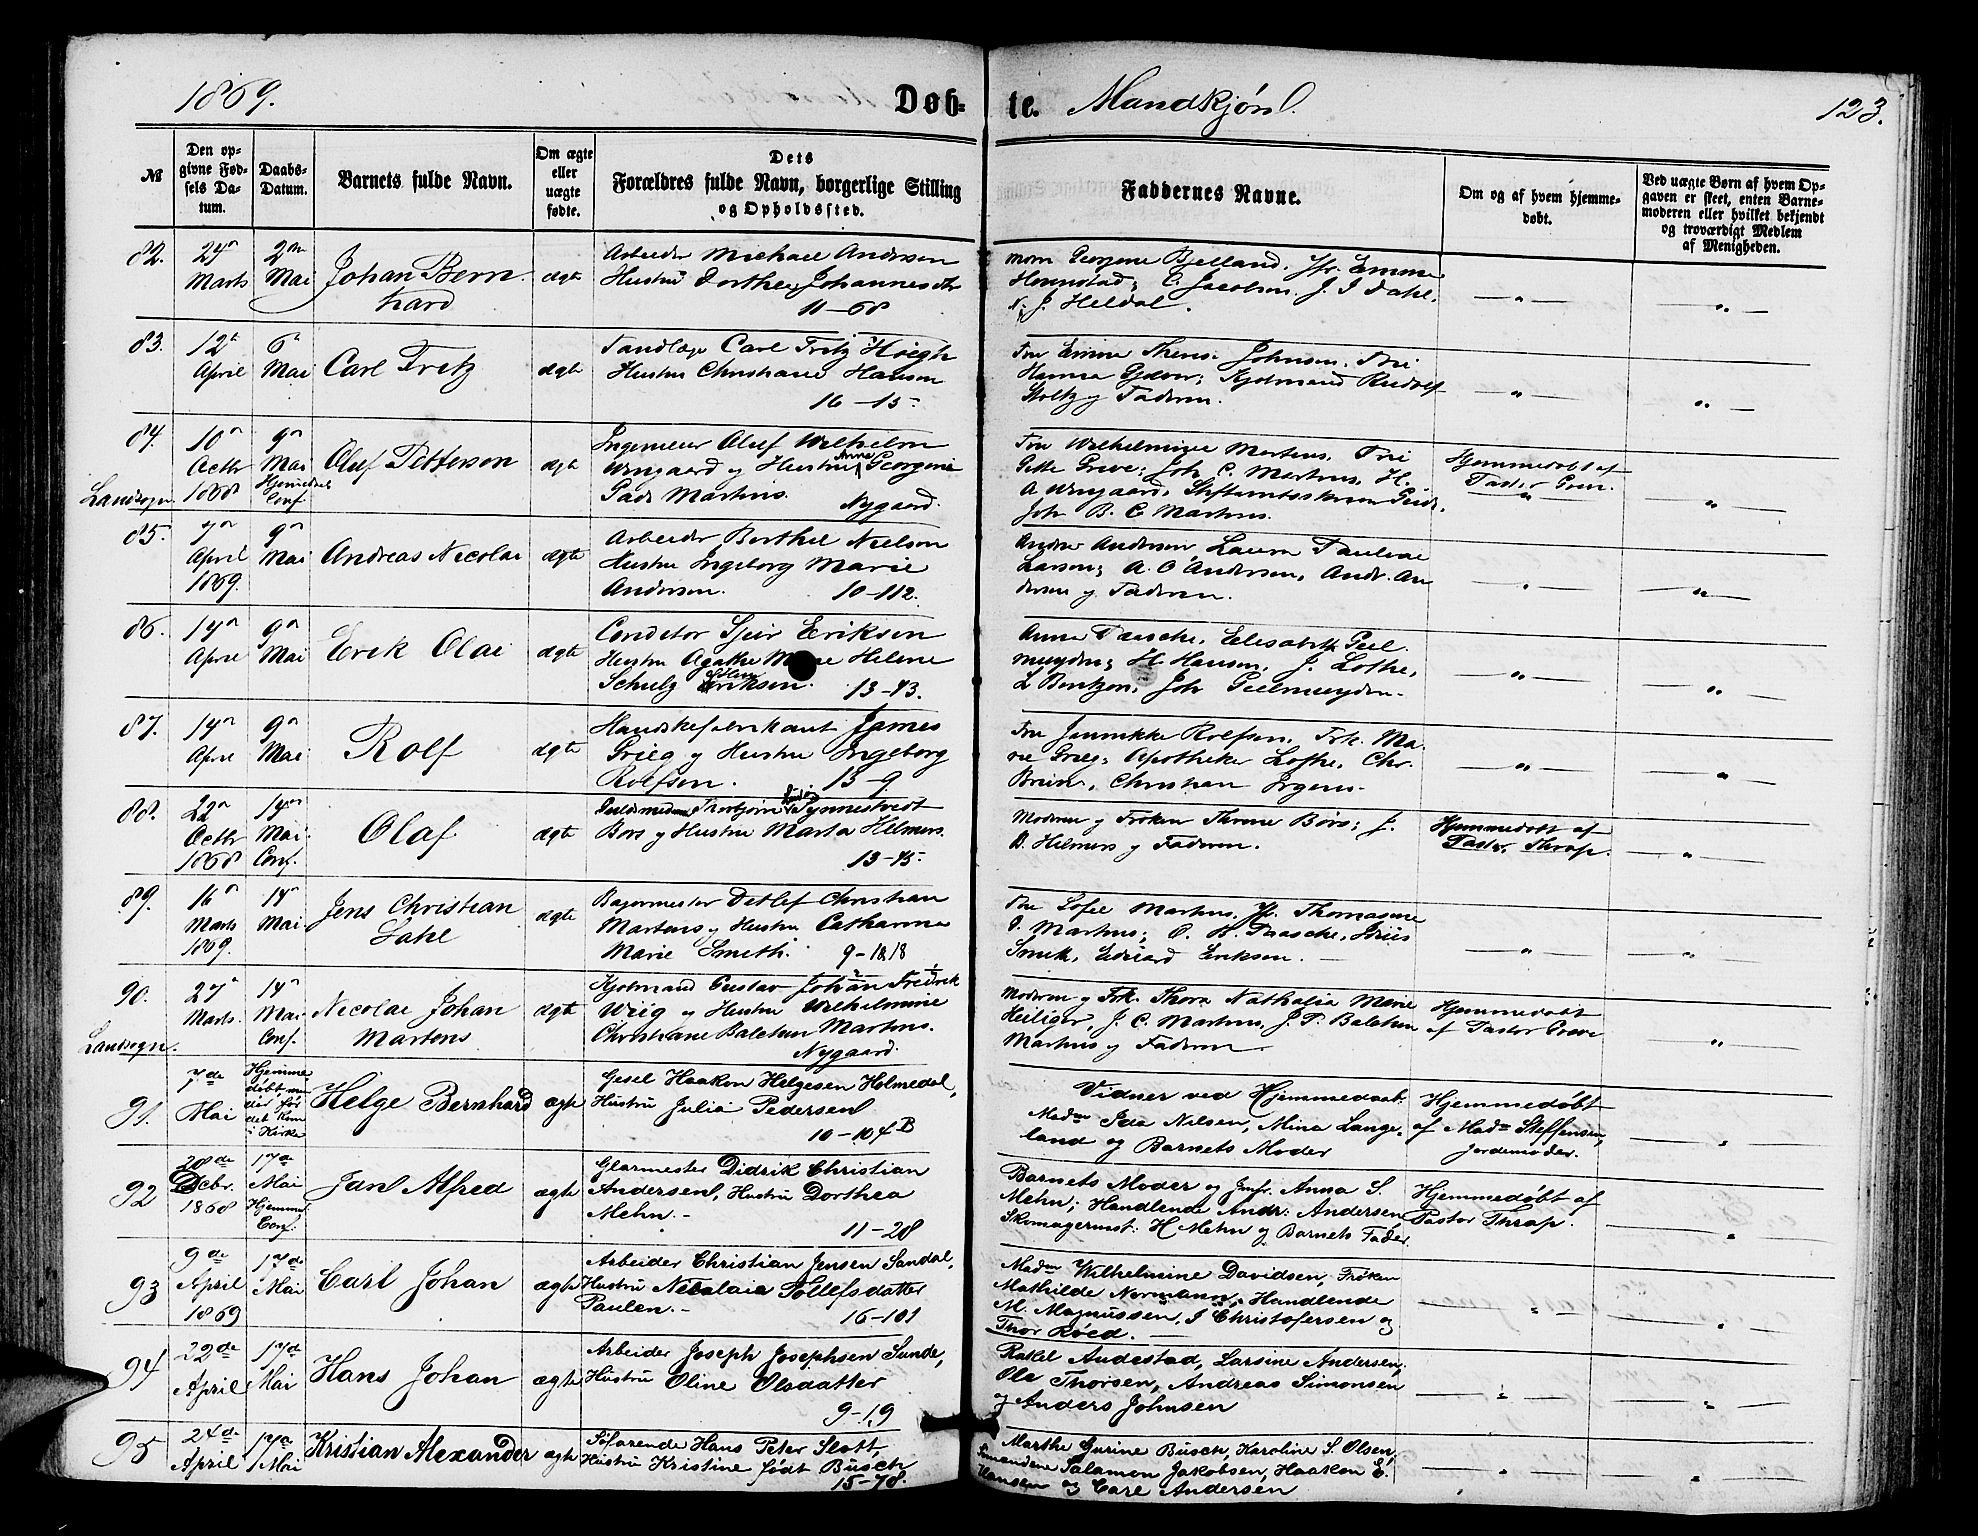 1869.
Døb-
te.
Mandkjøn.
123.
№
Den op-
givne Fød-
sels Da-
tum.
Daabs-
Datum.
Barnets fulde Navn.
Om ægte
eller
uægte
fødte.
Dets
Forældres fulde Navn, borgerlige Stilling
og Opholdssted.
Faddernes Navne.
Om og af hvem hjemme-
døbt.
Ved uægte Børn af hvem Op-
gaven er skeet, enten Barne-
moderen eller hvilket bekjendt
og troværdigt Medlem
af Menigheden.
82.
24
Marts
2den
Mai
Johan Bern
hard
ægte
Arbeider Michael Andersen
Hustru Dorthea Johannesdtr
11-68
Georgine Bjelland. Jfr. Emma
C. Jacobsen. J. J. Dahl.
J. Heldal.
83.
12
April
6
Mai
Carl Fritz
ægte
Tandlæge Carl Fritz Høegh
Hustru Christiane Hansen
16-15
Fru Emma Johnsen. Frk
Hanna Gjæver; Kjøbmand Rudolf
Stoltz og Faderen.
84.
Landsogn
10
Octbr
1868
9
Mai
Hjemmed.
Conf.
Oluf Petterson
ægte
Ingenieur Oluf Wilhelm
Wingaard og Hustru Anna Georgine
Martens.
Nygaard.
Fru Wilhelmine Martens. Frk
Greve; Joh C. Martens, H.
Joh B. C Martens.
Hjemmedøbt af
Pastor Greve.
85.
7
April
1869.
9
Mai
Andreas Nicolai
ægte
Arbeider Berthel Nielsen
Hustru Ingeborg Marie
Andersen.
10-112.
Andersen, Laura Pauline
Larsen; A. O Andersen, Andr. An
dersen og Faderen.
86.
14
April
9
Mai
Erik Olai
ægte
Conditor Sjur Eriksen
Hustru Agathe Marie Helene
Schulz Eriksen.
13-43.
Anna Paasche, Elisabeth Peel
muyden; H Hansen, J. Lothe,
L Bentzon, Joh Peelmuyden
87.
14
April
9
Mai
Rolf
ægte
Handskefabrikant James
Grieg og Hustru Ingeborg
Rolfsen.
13-9
Fru Jannikke Rolfsen, Frk. Ma
rie Grieg; Apotheker Lothe, Chr.
Christian Irgens
88.
22
Octbr
1868
14
Mai
Conf.
Olaf
ægte
Thorbjørn Tynnestvedt
Børs og Hustru Marta Helmers.
13-45
Moderen og Frøken Børs; J.
D. Helmers og Faderen.
Hjemmedøbt af
Pastor Thrap.
89.
16
Marts
1869.
14
Mai
Jens Christian
Dahl
ægte
Bagermester Detlef Christian
Martens og Hustru Catharina
Marie Smith.
9-1818
Fru Sofie Martens, Jfr Thomasine
Martens; Paasche,
Edvard Eriksen.
90.
Landsogn.
27
Marts.
14
Mai
Conf.
Nicolai Johan
Martens
ægte
Kjøbmand Gustav Johan Fredrik
Wiig og Hustru Wilhelmine
Christiane Balchen Martens.
Nygaard.
Moderen og Frk. Thora Nathalia Marie
Heiliger, J. C. Martens, J. P. Balchen
Martens og Faderen
Hjemmedøbt
af Pastor Greve
91.
7de
Mai
Hjemme
døbt,
det kom
i Kirke
Helge Bernhard
ægte
Gesel Haakon Helgesen Holmedal,
Hustru Julia Pedersen
10-104B
Vidner ved Hjemmedaab:
Madm Ida Nilsen, Mina Lange-
land og Barnets Moder
Hjemmedøbt
af Madm Steffensen,
Jordemoder.
92
28de
Dcbr.
1868
17de
Mai
Hjemme
Conf.
Janl Alfred
ægte
Glarmester Didrik Christian
Andersen, Hustru Dorthea
Mehn.-
11-28
Barnets Moder og Jmfr. Anna S.
Mehn; Handlende Andr: Andersen
Skomagermst. H Mehn og Barnets Fader.
Hjemmedøbt af
Pastor Thrap.
93
9de
April
1869
17de
Mai
Carl Johan
ægte
Arbeider Christian Jensen Sandal,
Hustru Nicolaie Tollefsdatter
Paulen.-
16-101
Madm Wilhelmine Davidsen, Frøken
Mathilde Normann, Handlende
M. Magnussen, J Christofersen og
Thor Røed.
94
22de
April
17de
Mai
Hans Johan
ægte
Arbeider Joseph Josephsen Sunde,
Hustru Oline Olsdatter
9-19
Rakel Audestad, Larsine Andersen,
Ole Thorsen, Andreas Simonsen
og Anders Johnsen
95
24de
April
17de
Mai
Kristian Alexander
ægte
Søfarende Hans Peter Slott,
Hustru Kristine født Büsch
15-78.
Marthe Gurine Büsch, Karoline S. Olsen,
Salamon Jakobsen, Haakon E.
Hansen og Carl Andersen